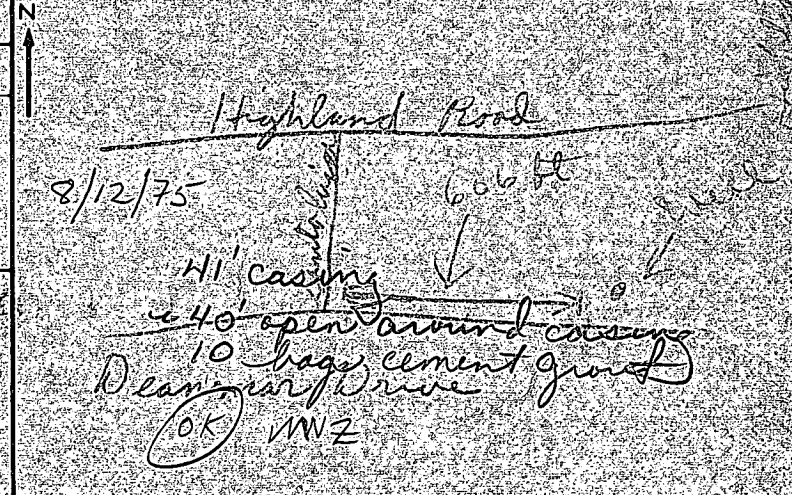 N
Highland Road
8/12/75
606 ft
41' casing
40' open around casing
10 bags cement grout
Drive
OK MWZ